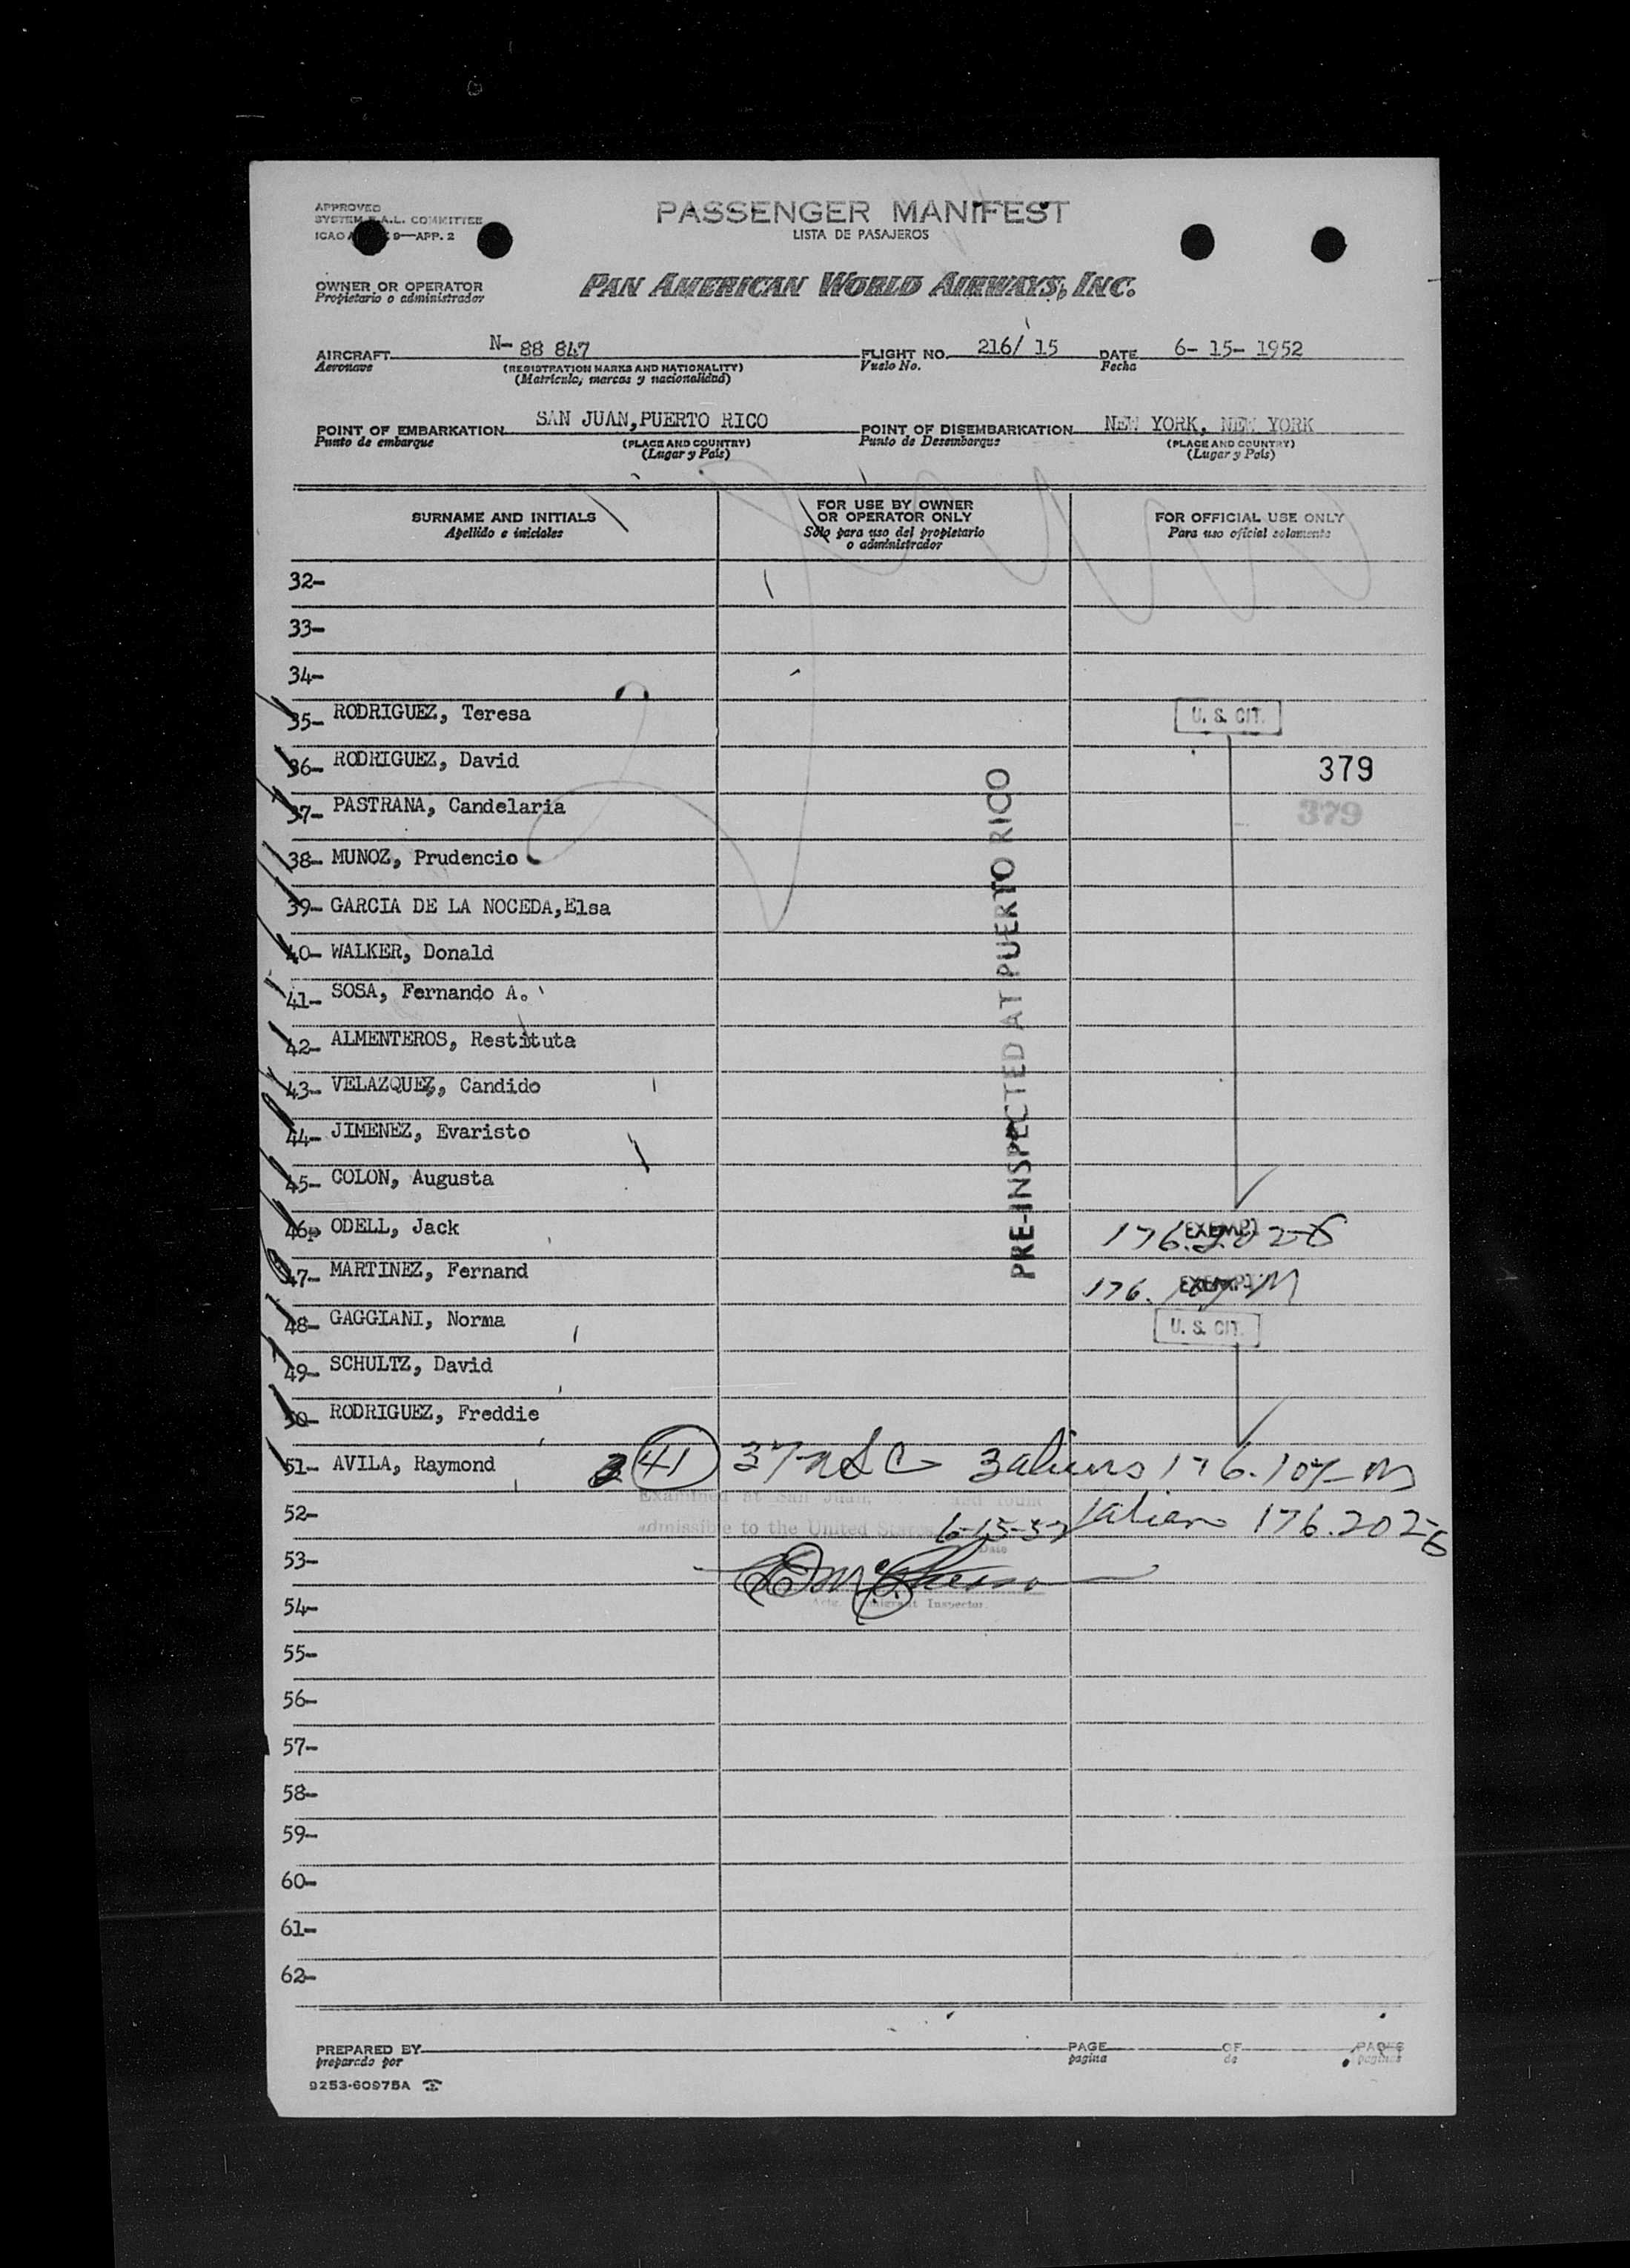 APPROVED
SYSTEM F.A.L. COMMITTEE
ICAO 9—APP. 2
PASSENGER MANIFEST
LISTA DE PASAJEROS
OWNER OR OPERATOR
Propietario o administrador
PAN AMERICAN WORLD AIRWAYS, INC.
AIRCRAFT N- 88 847 FLIGHT NO. 216/ 15 DATE 6- 15- 1952
Aeronave (REGISTRATION MARKS AND NATIONALITY) Vuelo No. Fecha
(Matricula, marcas y nacionalidad)
POINT OF EMBARKATION SAN JUAN,PUERTO RICO POINT OF DISEMBARKATION NEW YORK, NEW YORK
Punto de embarque (PLACE AND COUNTRY) Punto de Desembarque (PLACE AND COUNTRY)
(Lugar y País) (Lugar y País)
SURNAME AND INITIALS
Apellido e iniciales
FOR USE BY OWNER
OR OPERATOR ONLY
Sólo para uso del propietario
o administrador
FOR OFFICIAL USE ONLY
Para uso oficial solamente
32-
33-
34-
35- RODRIGUEZ, Teresa U. S. CIT.
36- RODRIGUEZ, David 379
37- PASTRANA, Candelaria 379
38- MUNOZ, Prudencio
39- GARCIA DE LA NOCEDA,Elsa
40- WALKER, Donald
41- SOSA, Fernando A.
42- ALMENTEROS, Restituta
43- VELAZQUEZ, Candido
44- JIMENEZ, Evaristo
45- COLON, Augusta
PRE-INSPECTED AT PUERTO RICO
46- ODELL, Jack 176.202-6 EXEMPT
47- MARTINEZ, Fernand 176. EXEMPT
48- GAGGIANI, Norma U. S. CIT.
49- SCHULTZ, David
50- RODRIGUEZ, Freddie
51- AVILA, Raymond 41 37 USC 3 aliens 176.107-M
Examined at San Juan, P. and found
52- admissible to the United States 6-15-52 1 alien 176.202-6
Date
53-
54- Actg. Immigrant Inspector.
55-
56-
57-
58-
59-
60-
61-
62-
PREPARED BY PAGE OF PAGES
preparado por pagina de paginas
9253-60975A